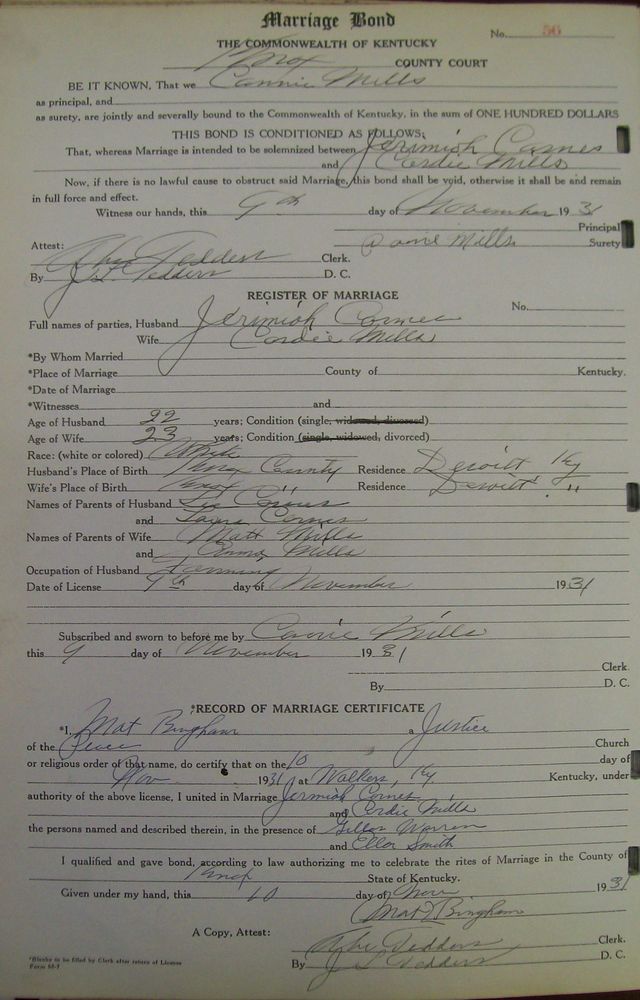 Marriage Bond
No. 56
THE COMMONWEALTH OF KENTUCKY
Knox COUNTY COURT
BE IT KNOWN, That we Cannie Mills
as principal, and
as surety, are jointly and severally bound to the Commonwealth of Kentucky, in the sum of ONE HUNDRED DOLLARS
THIS BOND IS CONDITIONED AS FOLLOWS:
That, whereas Marriage is intended to be solemnized between Jerimiah Carnes
and Cordie Mills
Now, if there is no lawful cause to obstruct said Marriage, this bond shall be void, otherwise it shall be and remain
in full force and effect.
Witness our hands, this 9th day of November 1931
Principal
Attest: Mills Surety
Abe Tedders Clerk.
By J.S. Tedders D. C.
REGISTER OF MARRIAGE
No.
Full names of parties, Husband Jerimiah Carnes
Wife Cordie Mills
*By Whom Married
*Place of Marriage County of Kentucky.
*Date of Marriage
*Witnesses and
Age of Husband 22 years; Condition (single, widowed, divorced)
Age of Wife 23 years; Condition (single, widowed, divorced)
Race: (white or colored) White
Husband's Place of Birth Knox County Residence Dewitt Ky
Wife's Place of Birth Knox " Residence Dewitt "
Names of Parents of Husband
and
Names of Parents of Wife Matt Mills
and Emma Mills
Occupation of Husband Farming
Date of License 9th day of November 1931
Subscribed and sworn to before me by Cannie Mills
this 9 day of November 1931
Clerk
By D. C.
*RECORD OF MARRIAGE CERTIFICATE
*I, Mat Bingham a Justice
of the Peace Church
or religious order of that name, do certify that on the 10 day of
Nov 1931 at Walkers, Ky Kentucky, under
authority of the above license, I united in Marriage Jermiah Carnes
and Cordie Mills
the persons named and described therein, in the presence of Warren
and Smith
I qualified and gave bond, according to law authorizing me to celebrate the rites of Marriage in the County of
Knox State of Kentucky.
Given under my hand, this 10 day of Nov 1931
Mat Bingham
A Copy, Attest:
Abe Tedders Clerk.
By J.S. Tedders D. C.
*Blanks to be filled by Clerk after return of License
Form 55-7